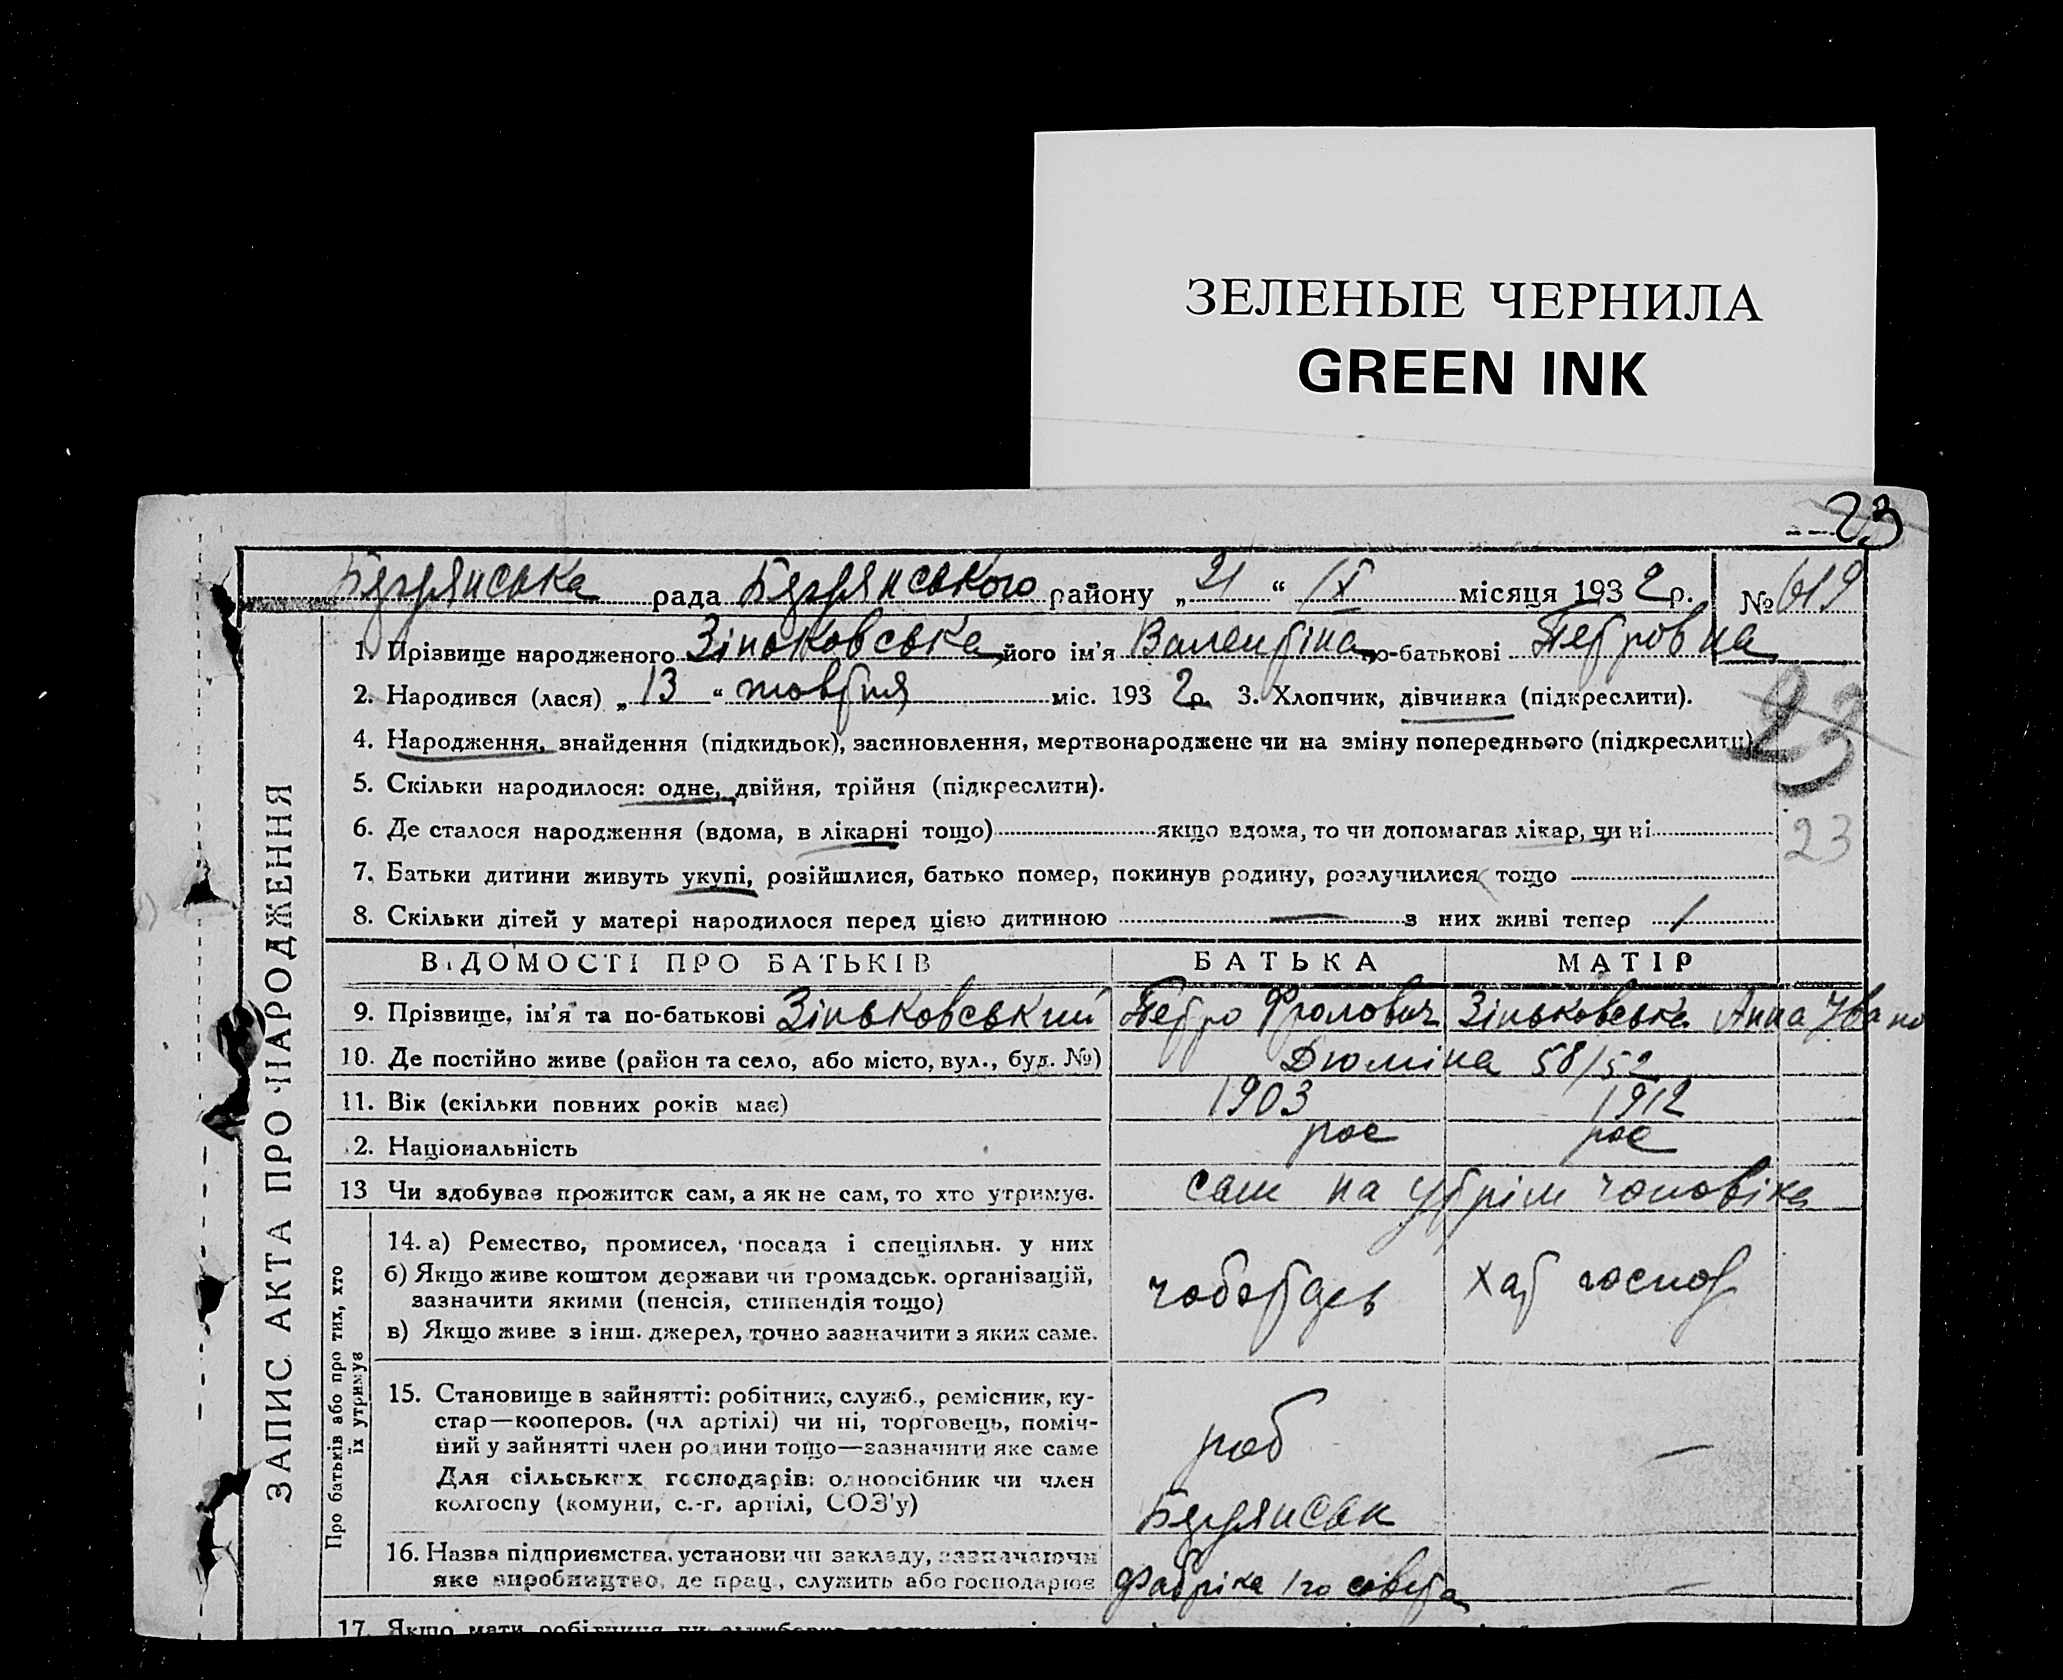 ЗЕЛЕНЫЕ ЧЕРНИЛА
GREEN INK
23
Бердянська рада Бердянського району „21“ IX місяця 1932 р. № 619
1. Прізвище народженого Зіньковська його ім'я Валентіна по-батькові Петровна
2. Народився (лася) „13“ жовтня міс. 1932 р. 3. Хлопчик, дівчинка (підкреслити).
4. Народження, знайдення (підкидьок), засиновлення, мертвонароджене чи на зміну попереднього (підкреслити)
23
5. Скільки народилося: одне, двійня, трійня (підкреслити).
6. Де сталося народження (вдома, в лікарні тощо) якщо вдома, то чи допомагав лікар, чи ні
23
7. Батьки дитини живуть укупі, розійшлися, батько помер, покинув родину, розлучилися тощо
8. Скільки дітей у матері народилося перед цією дитиною — з них живі тепер 1
ЗАПИС АКТА ПРО НАРОДЖЕННЯ
ВІДОМОСТІ ПРО БАТЬКІВ БАТЬКА МАТІР
9. Прізвище, ім'я та по-батькові Зіньковський Петро Фролович Зіньковська Анна Івано
10. Де постійно живе (район та село, або місто, вул., буд. №) Дюміна 58/52
11. Вік (скільки повних років має) 1903 1912
2. Національність рос рос
13 Чи здобував прожиток сам, а як не сам, то хто утримує. сам на утрім чоловіка
Про батьків або про тих, хто їх утримує
14. а) Ремество, промисел, посада і спеціяльн. у них
б) Якщо живе коштом держави чи громадськ. організацій,
зазначити якими (пенсія, стипендія тощо) чоботарь хат господ
в) Якщо живе з інш. джерел, точно зазначити з яких саме.
15. Становище в зайнятті: робітник, служб., ремісник, ку-
стар—кооперов. (чл артілі) чи ні, торговець, поміч-
ний у зайнятті член родини тощо—зазначити яке саме роб —
Для сільських господарів: одноосібник чи член
колгоспу (комуни, с.-г. артілі, СОЗ'у) Бердянськ
16. Назва підприємства, установи чи закладу, зазначаючи
яке виробництво, де прац., служить або господарює Фабріка 1го —
17. Якщо мати робітниця чи службовка